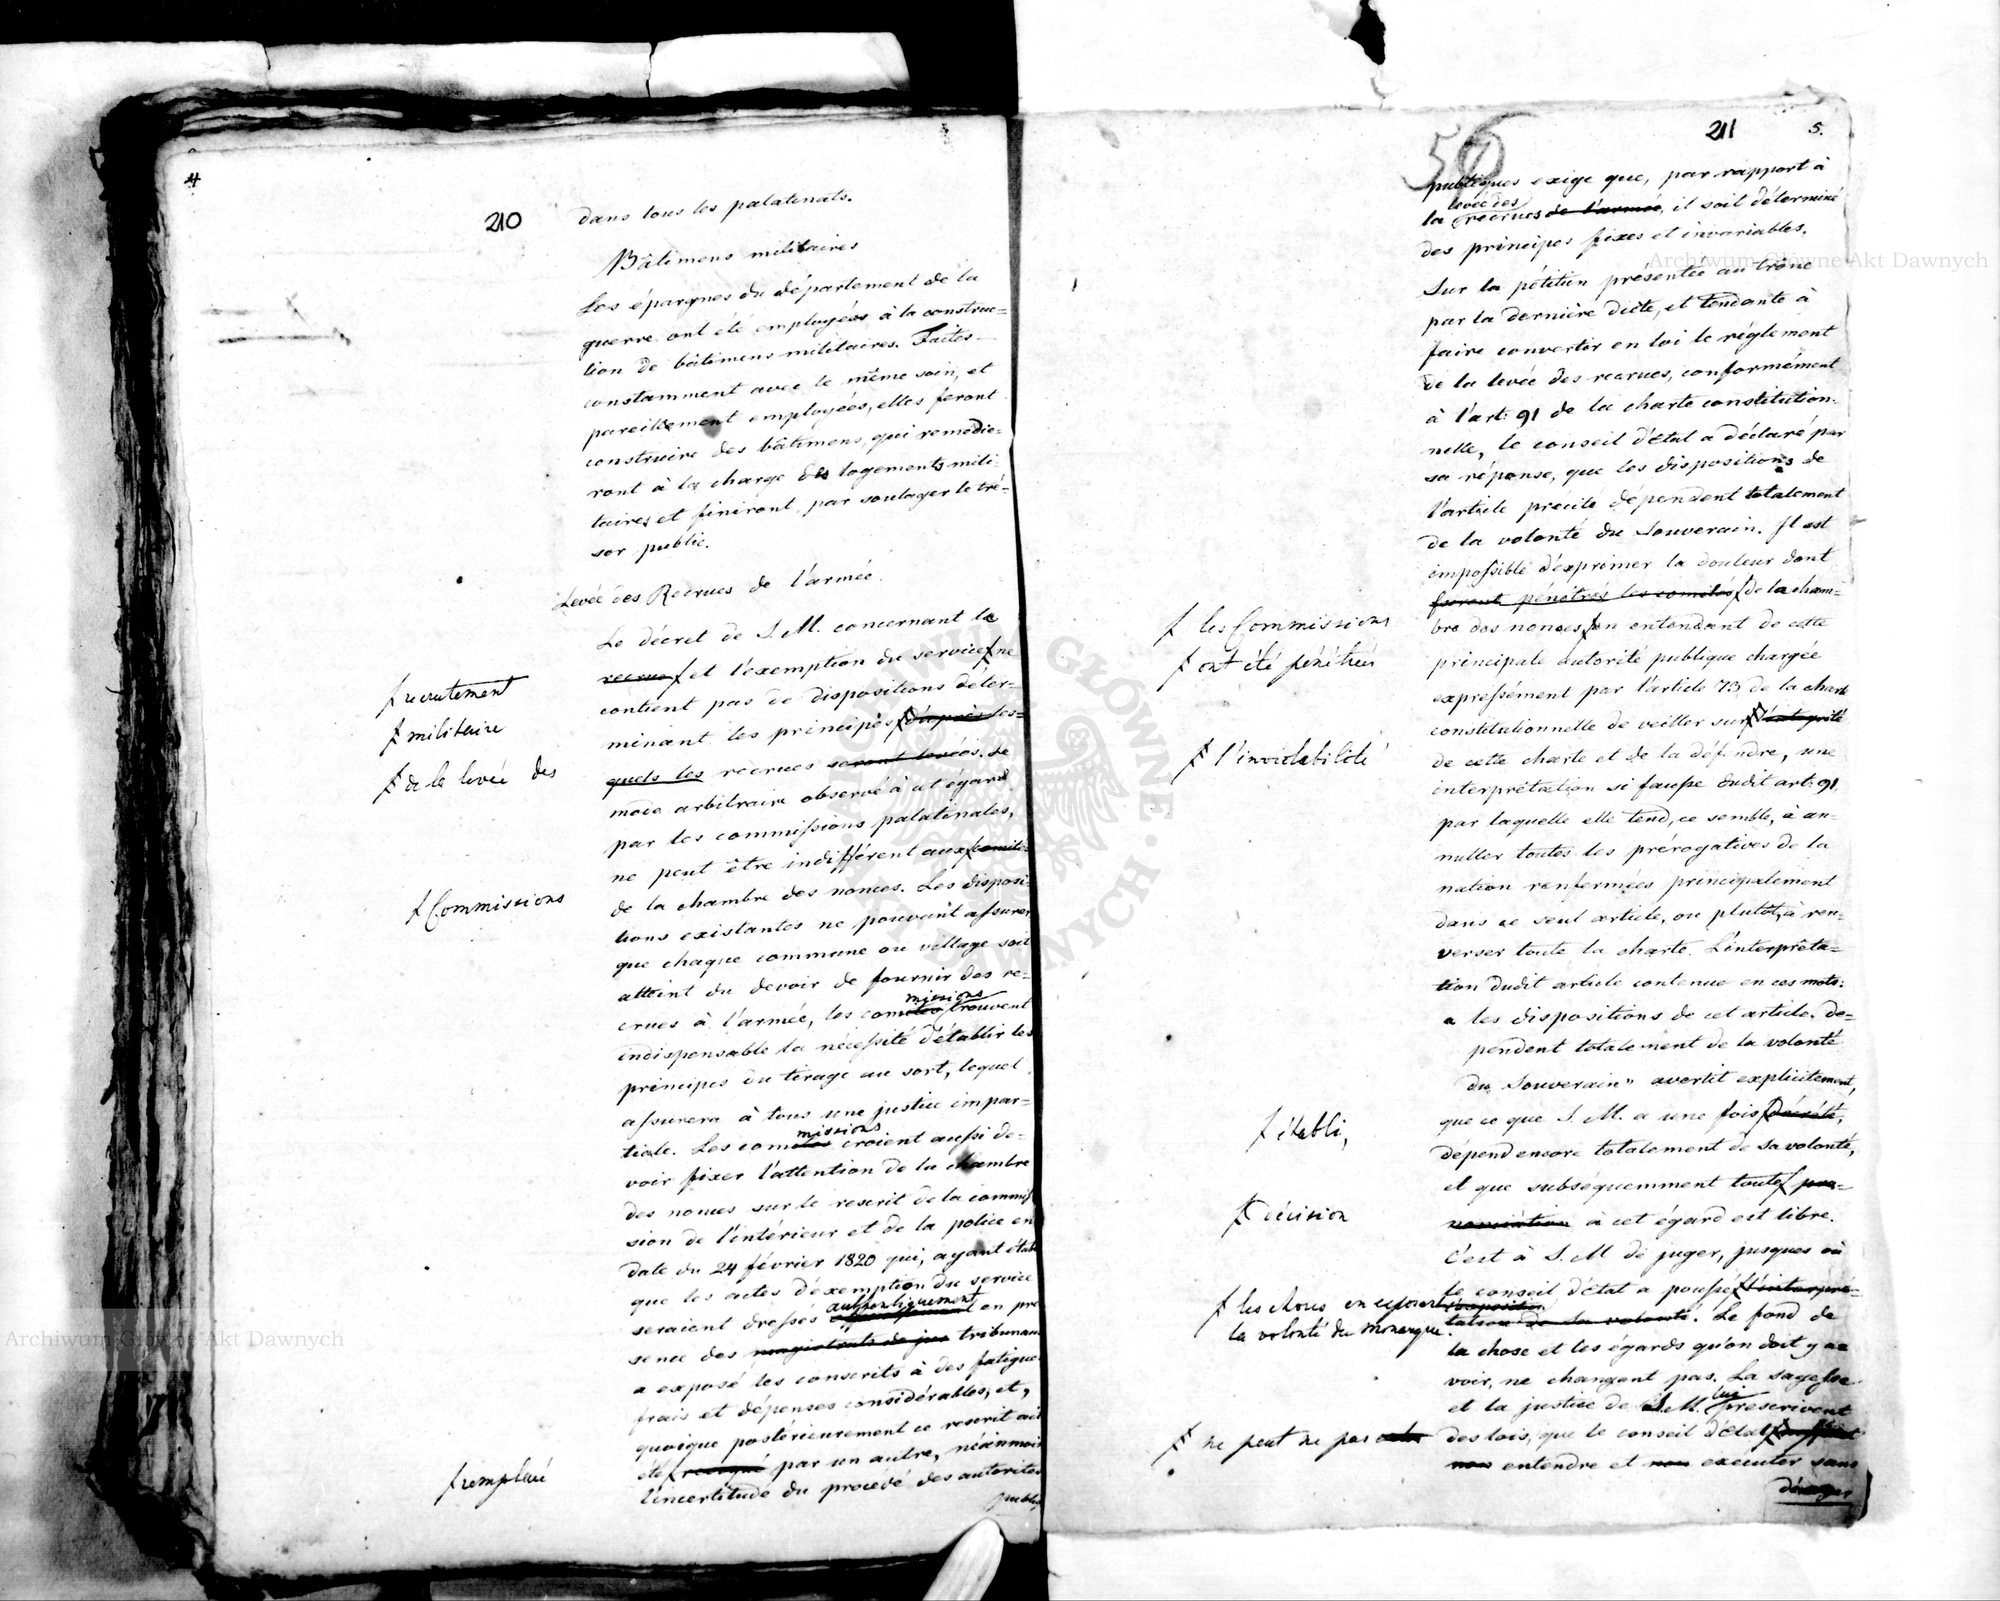 4
210
dans tous les palatinats.
Bâtimens militaires
Les épargnes du département de la
guerre ont été employées à la construc=
tion de bâtimens militaires. Faites
constamment avec le même soin, et
pareillement employées, elles feront
construire des bâtimens, qui remédie=
ront à la charge des logements mili=
taires et finiront par soulager le tré=
sor public.
Levée des Recrues de l'armée.
Le décret de S. M. concernant le
recrue et l'exemption du service ne
contient pas de dispositions déter=
minant les principes d'après les=
quels les recrues seront levées. Le
mode arbitraire observé à cet égard
par les commissions palatinales,
ne peut être indifférent aux comités
de la chambre des nonces. Les disposi=
tions existantes ne pouvant assurer
que chaque commune ou village soit
atteint du devoir de fournir des re=
missions
crues à l'armée, les comités trouvent
indispensable la nécessité d'établir les
principes du tirage au sort, lequel
assurera à tous une justice impar=
missions
tiale. Les comités croient aussi de=
voir fixer l'attention de la chambre
des nonces sur le rescrit de la commis
sion de l'intérieur et de la police en
date du 24 février 1820 qui, ayant établi
que les actes d'exemption du service
authentiquement
seraient dressés en pré
sence des magistrats de paix tribunaux
a exposé les conscrits à des fatigues
frais et dépenses considérables, et,
quoique postérieurement ce rescrit ait
été révoqué par un autre, néanmoins
l'incertitude du procédé des autorités
publi
recrutement
militaire
de la levée des
Commissions
remplacé
56
211
5.
publiques exige que, par rapport à
levée des
la recrues de l'armée, il soit déterminé
des principes fixes et invariables.
Sur la pétition présentée au trône
par la dernière diète, et tendante à
faire convertir en loi le réglement
de la levée des recrues, conformément
à l'art: 91 de la charte constitution=
nelle, le conseil d'état a déclaré par
sa réponse, que les dispositions de
l'article précité dépendent totalement
de la volonté du Souverain. Il est
impossible d'exprimer la douleur dont
furent pénétrés les comités de la cham=
bre des nonces en entendant de cette
principale autorité publique chargée
expressément par l'article 73 de la charte
constitutionnelle de veiller sur l'intégrité
de cette charte et de la défendre, une
interprétation si fausse dudit art: 91,
par laquelle elle tend, ce semble, à an=
nuller toutes les prérogatives de la
nation renfermées principalement
dans ce seul article, ou plutôt, à ren=
verser toute la charte. L'interpréta=
tion dudit article contenue en ces mots:
« les dispositions de cet article, dé=
pendent totalement de la volonté
du Souverain" avertit explicitement,
que ce que S. M. a une fois décrété,
dépend encore totalement de sa volonté,
et que subséquemment toute pro=
nonciation à cet égard est libre.
C'est à S. M de juger, jusques où
le conseil d'état a poussé l'interpré=
l'exposition
tation de sa volonté. Le fond de
la chose et les égards qu'on doit y a=
voir, ne changent pas. La sagesse
lui
et la justice de S. M. prescrivent
des lois, que le conseil d'état
non entendre et non exécuter sans
déroger
les Commissions
ont été pénétrées
l'inviolabilité
établi,
décision
les choses en exposant
la volonté du monarque.
ne peut ne pas
Archiwum Główne Akt Dawnych
Archiwum Główne Akt Dawnych
ARCHIWUM GŁÓWNE AKT DAWNYCH